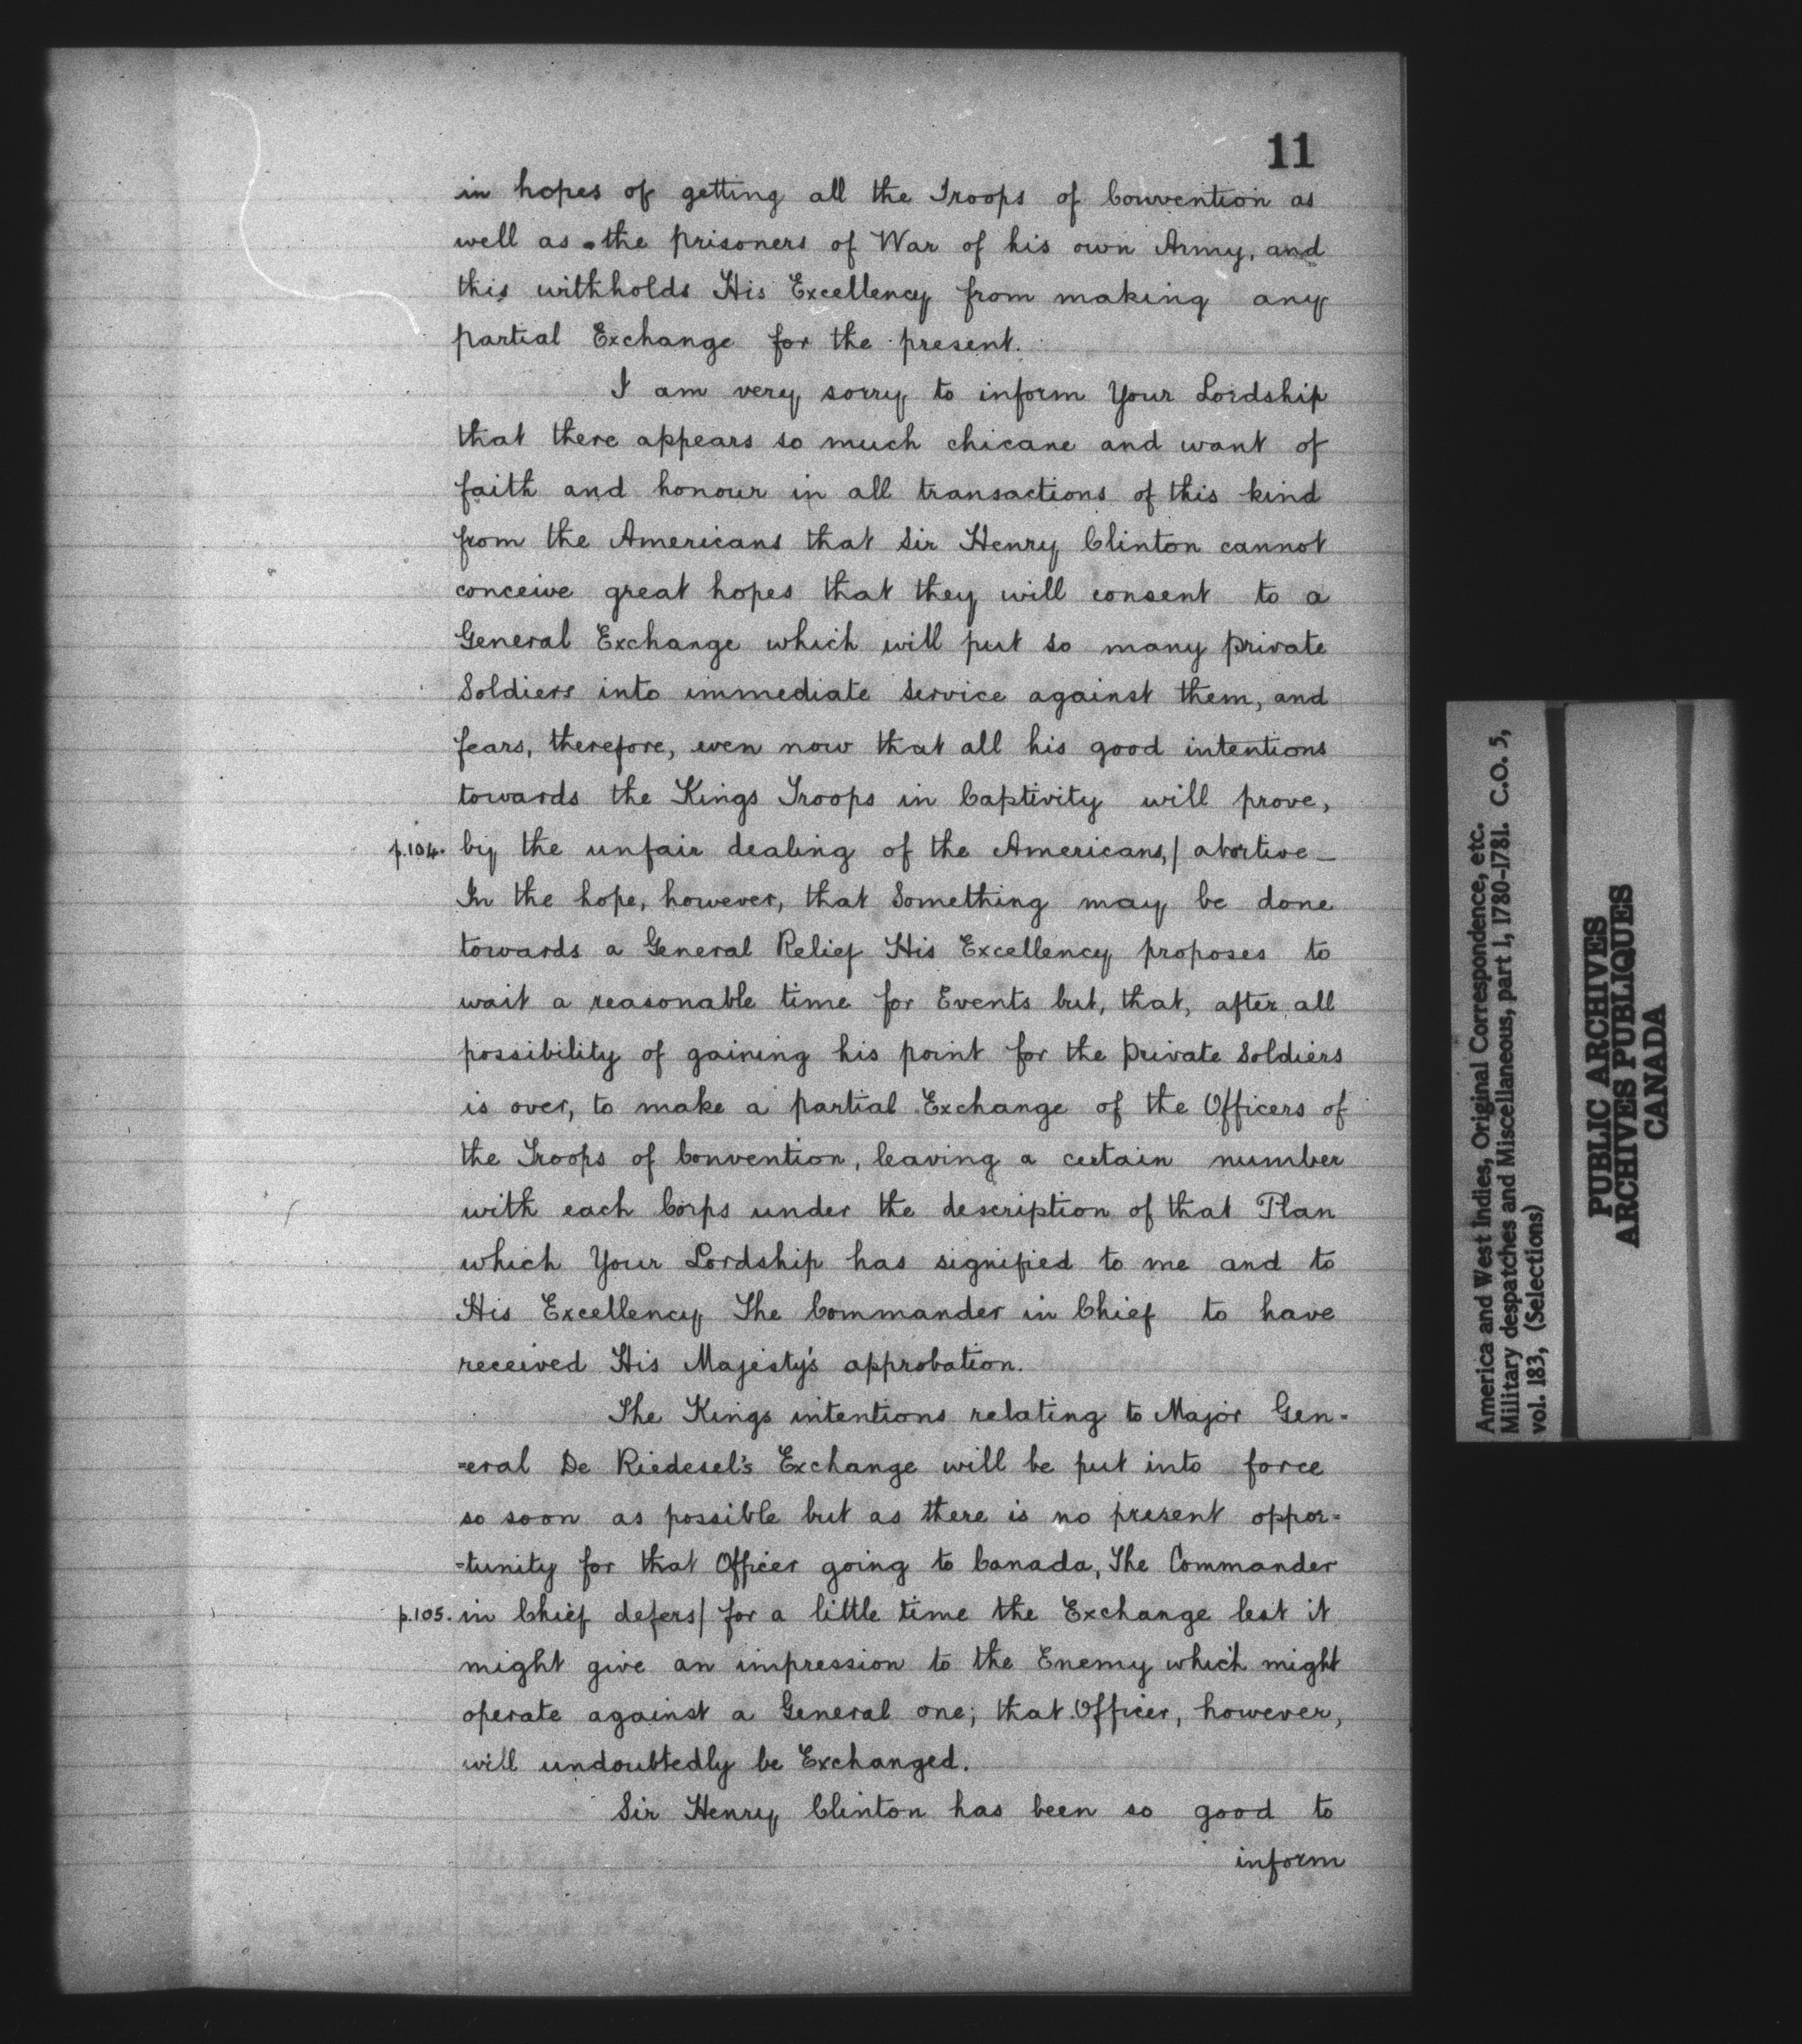 11
in hopes of getting all the Troops of Convention as
well as the prisoners of War of his own Army, and
this withholds His Excellency from making any
partial Exchange for the present.
I am very sorry to inform Your Lordship
that there appears so much chicane and want of
faith and honour in all transactions of this kind
from the Americans that Sir Henry Clinton cannot
conceive great hopes that they will consent to a
General Exchange which will put so many private
Soldiers into immediate Service against them, and
fears, therefore, even now that all his good intentions
towards the Kings Troops in Captivity will prove,
p.104. by the unfair dealing of the Americans,/ abortive_
In the hope, however, that Something may be done
towards a General Relief His Excellency proposes to
wait a reasonable time for Events but, that, after all
possibility of gaining his point for the private Soldiers
is over, to make a partial Exchange of the Officers of
the Troops of Convention, leaving a certain number
with each Corps under the description of that Plan
which Your Lordship has signified to me and to
His Excellency The Commander in Chief to have
received His Majesty's approbation.
The Kings intentions relating to Major Gen=
=eral De Riedesel's Exchange will be put into force
so soon as possible but as there is no present oppor=
=tunity for that Officer going to Canada, The Commander
p.105. in Chief defers/ for a little time the Exchange lest it
might give an impression to the Enemy which might
operate against a General one; that Officer, however,
will undoubtedly be Exchanged.
Sir Henry Clinton has been so good to
inform
America and West Indies, Original Correspondence, etc.
Military despatches and Miscellaneous, part 1, 1780-1781. C.O. 5,
vol. 183, (Selections)
PUBLIC ARCHIVES
ARCHIVES PUBLIQUES
CANADA